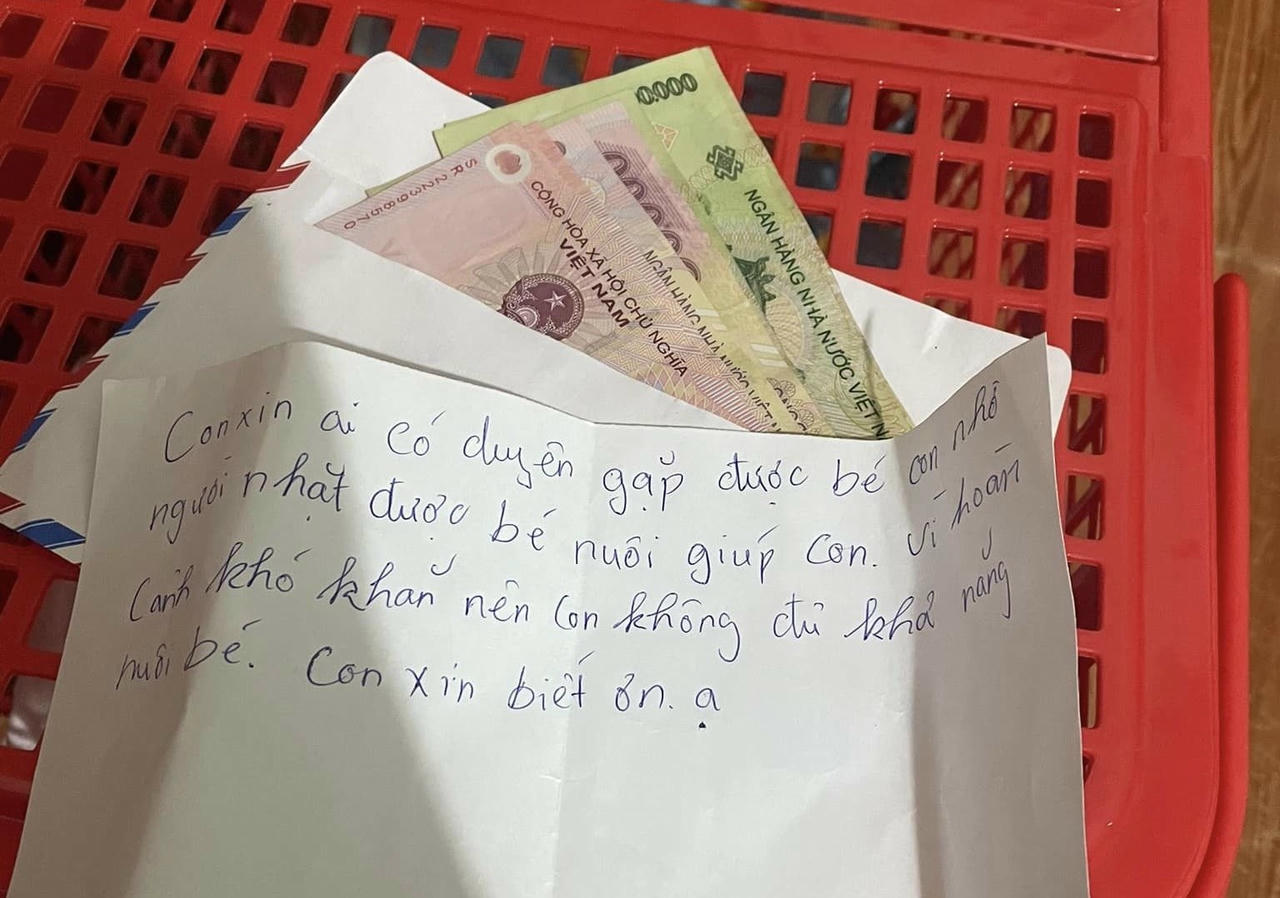 0.000
NGÂN HÀNG NHÀ NƯỚC VIỆT N
SR22398570
CỘNG HÒA XÃ HỘI CHỦ NGHĨA
VIỆT NAM
NGÂN HÀNG NHÀ NƯỚC VIỆT
Con xin ai có duyên gặp được bé con nhờ
người nhặt được bé nuôi giúp con. Vì hoàn
cảnh khó khăn nên con không đủ khả năng
nuôi bé. Con xin biết ơn. ạ